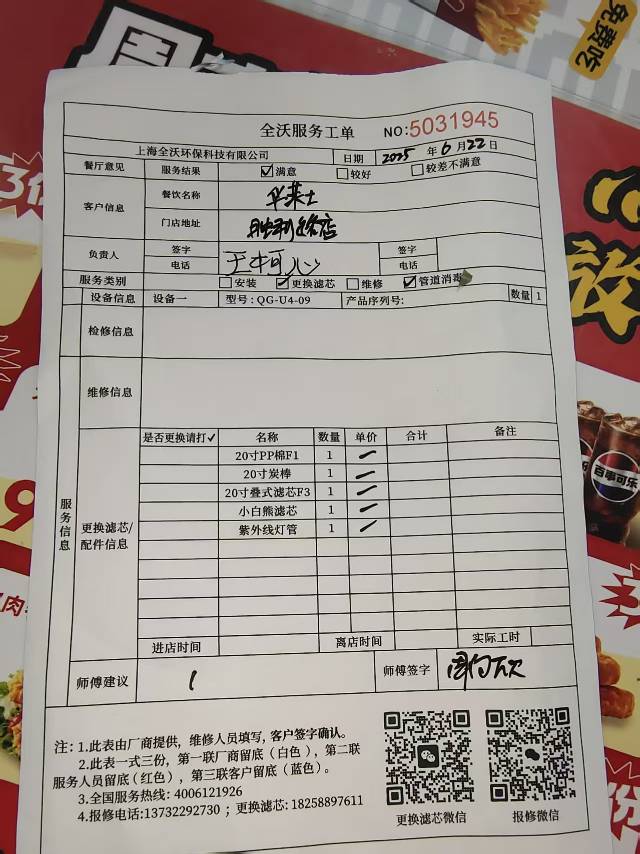 免费吃
全沃服务工单 NO:5031945
上海全沃环保科技有限公司 日期 2025 年 6 月 22 日
餐厅意见 服务结果 ☑满意 □较好 □较差不满意
客户信息 餐饮名称 华莱士
门店地址
负责人 签字 签字
电话 电话
服务类别 □安装 ☑更换滤芯 □维修 ☑管道消毒
设备信息 设备一 型号:QG-U4-09 产品序列号: 数量 1
检修信息
维修信息
服务信息
更换滤芯/配件信息
是否更换请打✓ 名称 数量 单价 合计 备注
20寸PP棉F1 1
20寸炭棒 1
20寸叠式滤芯F3 1
小白熊滤芯 1
紫外线灯管 1
进店时间 离店时间 实际工时
师傅建议 师傅签字
注:1.此表由厂商提供,维修人员填写,客户签字确认。
2.此表一式三份,第一联厂商留底(白色),第二联
服务人员留底(红色),第三联客户留底(蓝色)。
3.全国服务热线:4006121926
4.报修电话:13732292730;更换滤芯:18258897611
更换滤芯微信 报修微信
百事可乐